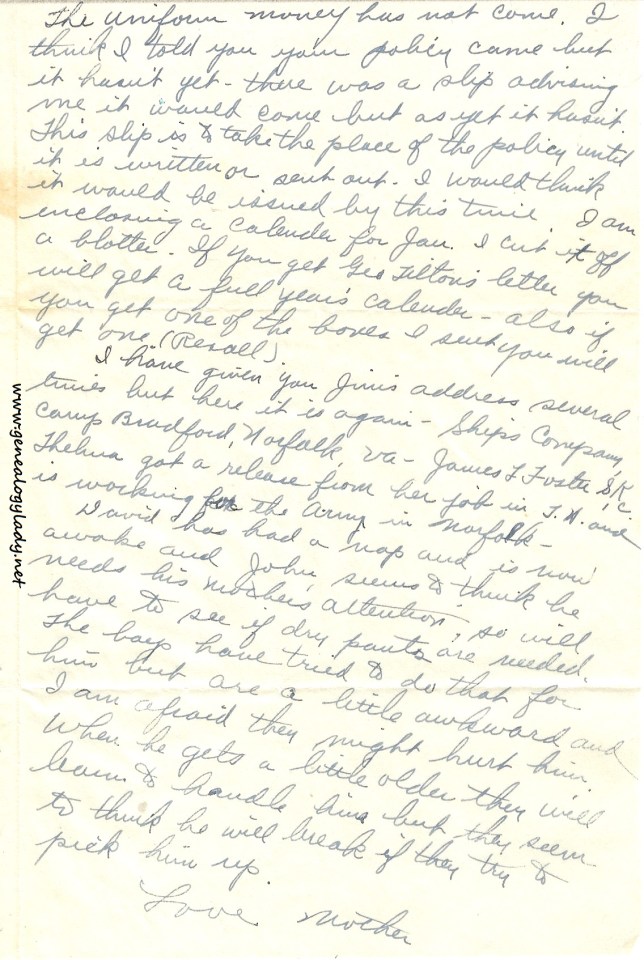 The uniform money has not come. I
think I told you your policy came but
it hasn't yet - there was a slip advising
me it would come but as yet it hasn't.
This slip is to take the place of the policy until
it is written or sent out. I would think
it would be issued by this time. I am
enclosing a calender for Jan. I cut it off
a blotter. If you get Geo Tilton's letter you
will get a full years calender - also if
you get one of the boxes I sent you will
get one. (Rexall)
I have given you Jim's address several
times but here it is again - Ships Company,
Camp Bradford, Norfolk, Va - James F Foster SK/C
Thelma got a release from her job in T.H. and
is working for the Army in Norfolk -
David has had a nap and is now
awake and John seems to think he
needs his mother's attention, so will
have to see if dry pants are needed.
The boys have tried to do that for
him but are a little awkward and
I am afraid they might hurt him.
When he gets a little older they will
learn to handle him but they seem
to think he will break if they try to
pick him up.
Love Mother
www.genealogylady.net